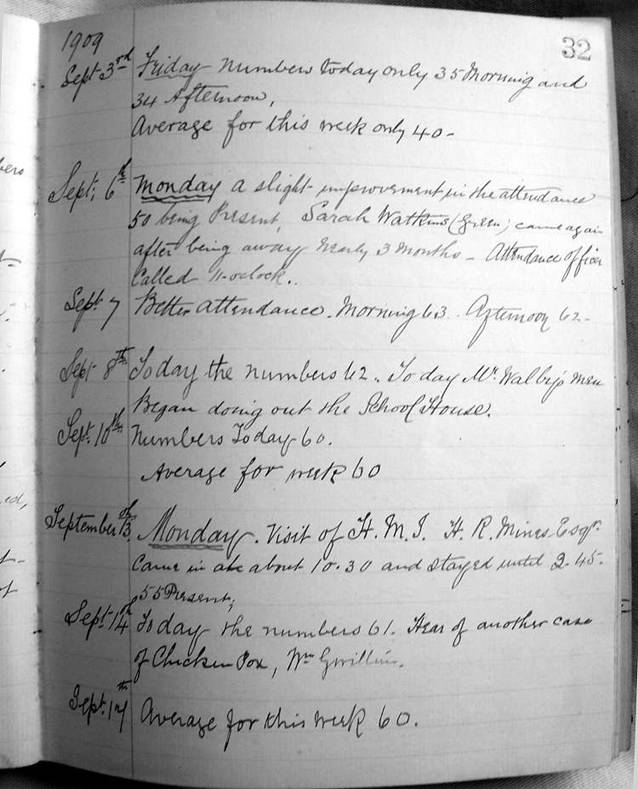 1909
32
Sept 3rd Friday Numbers today only 35 Morning and
34 Afternoon,
Average for this week only 40 -
Sept; 6th Monday a slight improvement in the attendance
50 being Present, Sarah Watkins (Green) came again
after being away nearly 3 months - Attendance officer
Called 11-oclock..
Sept 7 Better attendance. Morning 63. Afternoon 62 -
Sept 8th Today the numbers 62. Today Mr Walbys men
Began doing out the School House.
Sept. 10th Numbers Today 60.
Average for week 60
September 13th Monday. Visit of H. M. I. H. R. Mines Esqr.
Came in at about 10.30 and stayed until 2.45.
55 Present;
Sept 14th Today the numbers 61. Hear of another case
of Chicken Pox, Wm Gwillim.
Sept. 17th Average for this week 60.